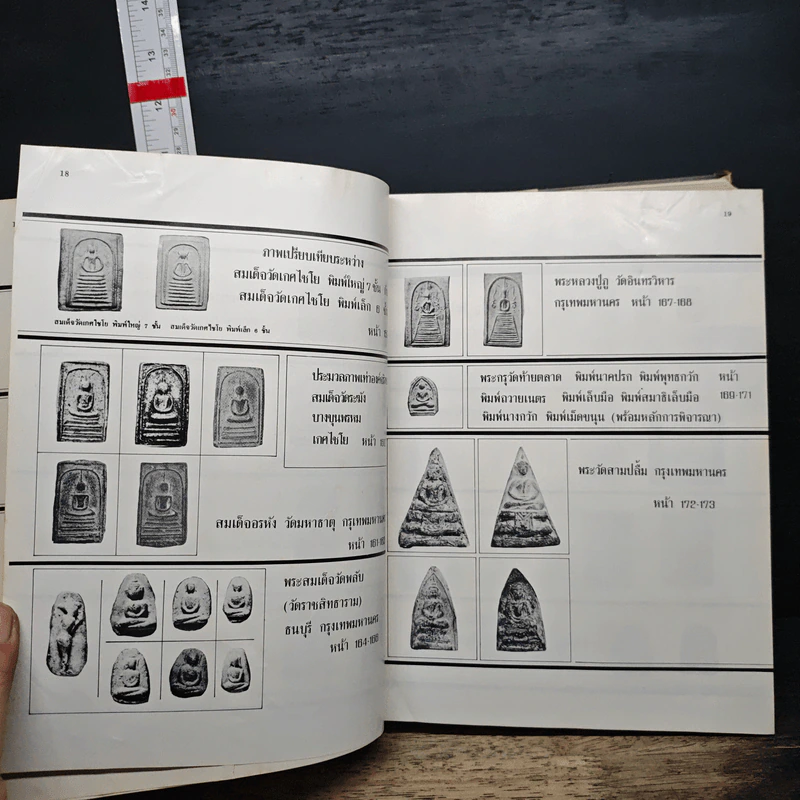 18
ภาพเปรียบเทียบระหว่าง
สมเด็จวัดเกศไชโย พิมพ์ใหญ่ 7 ชั้น
สมเด็จวัดเกศไชโย พิมพ์เล็ก 6
หน้า
สมเด็จวัดเกศไชโย พิมพ์ใหญ่ 7 ชั้น สมเด็จวัดเกศไชโย พิมพ์เล็ก 6 ชั้น
ประมวลภาพเท่าองค์
สมเด็จวัดระฆัง
บางขุนพรหม
เกศไชโย หน้า
สมเด็จอรหัง วัดมหาธาตุ กรุงเทพมหานคร
หน้า
พระสมเด็จวัดพลับ
(วัดราชสิทธาราม)
ธนบุรี กรุงเทพมหานคร
หน้า 164-166
19
พระหลวงปู่ภู วัดอินทรวิหาร
กรุงเทพมหานคร หน้า 167-168
พระกรุวัดท้ายตลาด พิมพ์นาคปรก พิมพ์พุทธกวัก หน้า
พิมพ์ถวายเนตร พิมพ์เล็บมือ พิมพ์สมาธิเล็บมือ 169-171
พิมพ์นางกวัก พิมพ์เม็ดขนุน (พร้อมหลักการพิจารณา)
พระวัดสามปลื้ม กรุงเทพมหานคร
หน้า 172-173
14
13
12